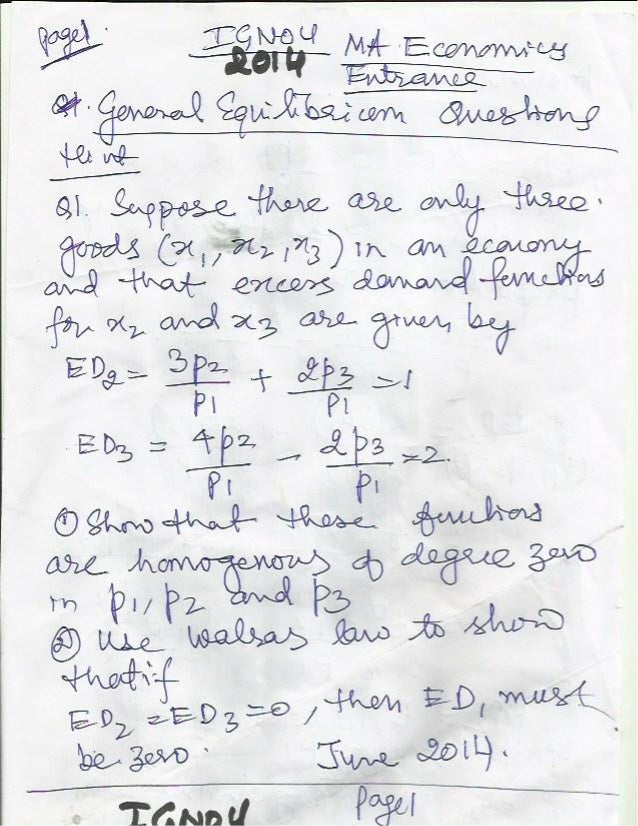 Page1. IGNOU MA Economics
2014 Entrance
Q1. General Equilibrium Questions
Q1. Suppose there are only three
goods (x1, x2, x3) in an economy
and that excess demand functions
for x2 and x3 are given by
ED2 = 3p2/p1 + 2p3/p1 = 1
ED3 = 4p2/p1 - 2p3/p1 = 2.
① Show that these functions
are homogenous of degree zero
in p1, p2 and p3
② Use walras law to show
that if
ED2 = ED3 = 0, then ED1 must
be zero. June 2014.
IGNOU Page1